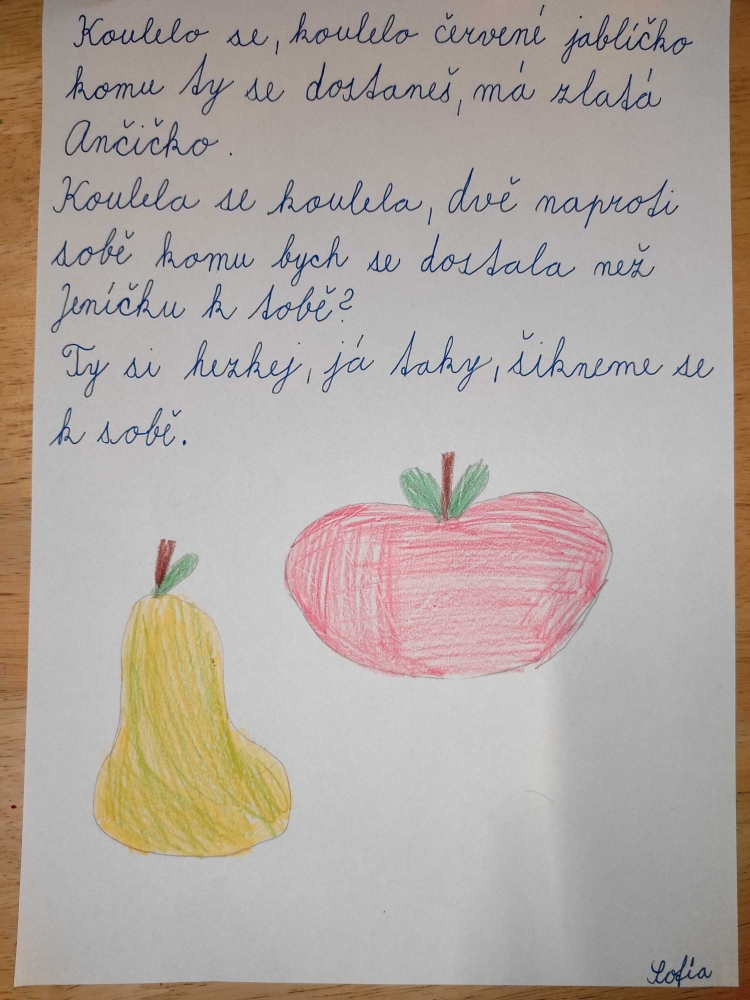 Koulelo se, koulelo červené jablíčko
komu ty se dostaneš, má zlatá
Ančičko.
Koulela se koulela, dvě naproti
sobě komu bych se dostala než
Jeníčku k tobě?
Ty si hezkej, já taky, šikneme se
k sobě.
Sofia